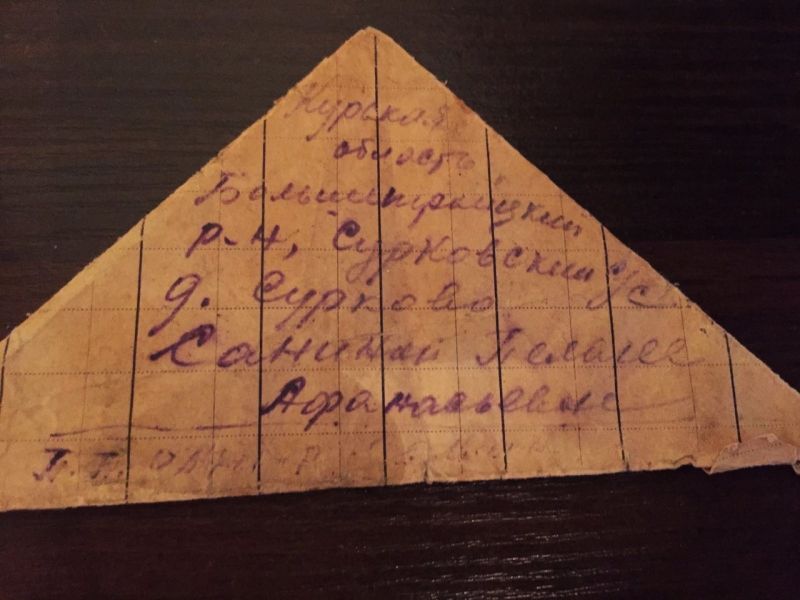 Курская
область
Большетроицкий
р-н, Сурковский с/с
д. Сурково
Санитай Пелагее
Афанасьевне
П.П.